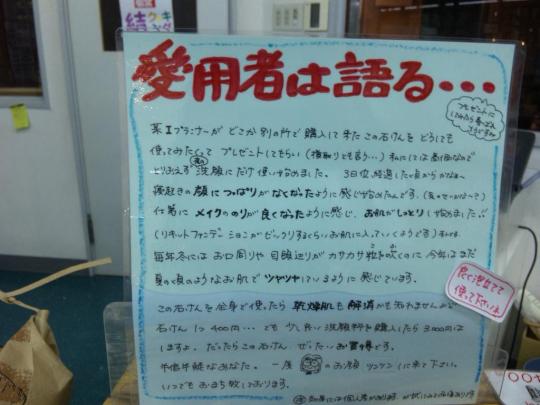 愛用者は語る・・・
プレゼントに
薬Iプランナーがどこか別の所で購入して来たこの石けんをどうしても
使ってみたくて プレゼントしてもらい(横取りとも言う…)私にしては高価なので
とりあえず夜の洗顔にだけ使い始めました。3日位経過した頃からかなぁ〜
寝起きの顔につっぱりがなくなったように感じ始めたんです。(気のせいかな〜?)
仕第にメイクのノリが良くなったように感じ、お肌がしっとりし始めました!!
(リキットファンデーションがビックリするくらいお肌に入っていくようです)
毎年冬にはお口周りや目頭辺りがカサカサ粒々なのに今年はまだ
夏の頃のようなお肌でツヤツヤしているように感じています。
良く泡立てて
使って下さいネ
この石けんを全身で使ったら乾燥肌も解消かも知れませんが
石けん1つ400円…でも少し良い洗顔料を購入したら3000円は
しますよ。だったらこの石けん、ぜったいお買得です。
半信半疑なあなた。一度
のお顔サワサワしに来て下さい。
いつでもお待ち致しております。
個人差があります